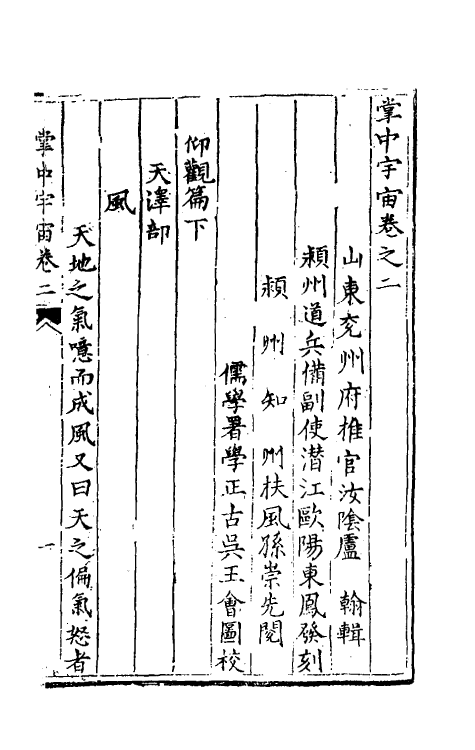 掌中宇宙卷之二
山東兖州府推官汝陰盧 翰輯
潁州道兵備副使潜江歐陽東鳳發刻
潁州知州扶風孫崇先閱
儒學署學正古吳王會圖校
仰觀篇下
天澤部
風
天地之氣噫而成風又曰天之偏氣怒者
掌中宇宙卷二
一